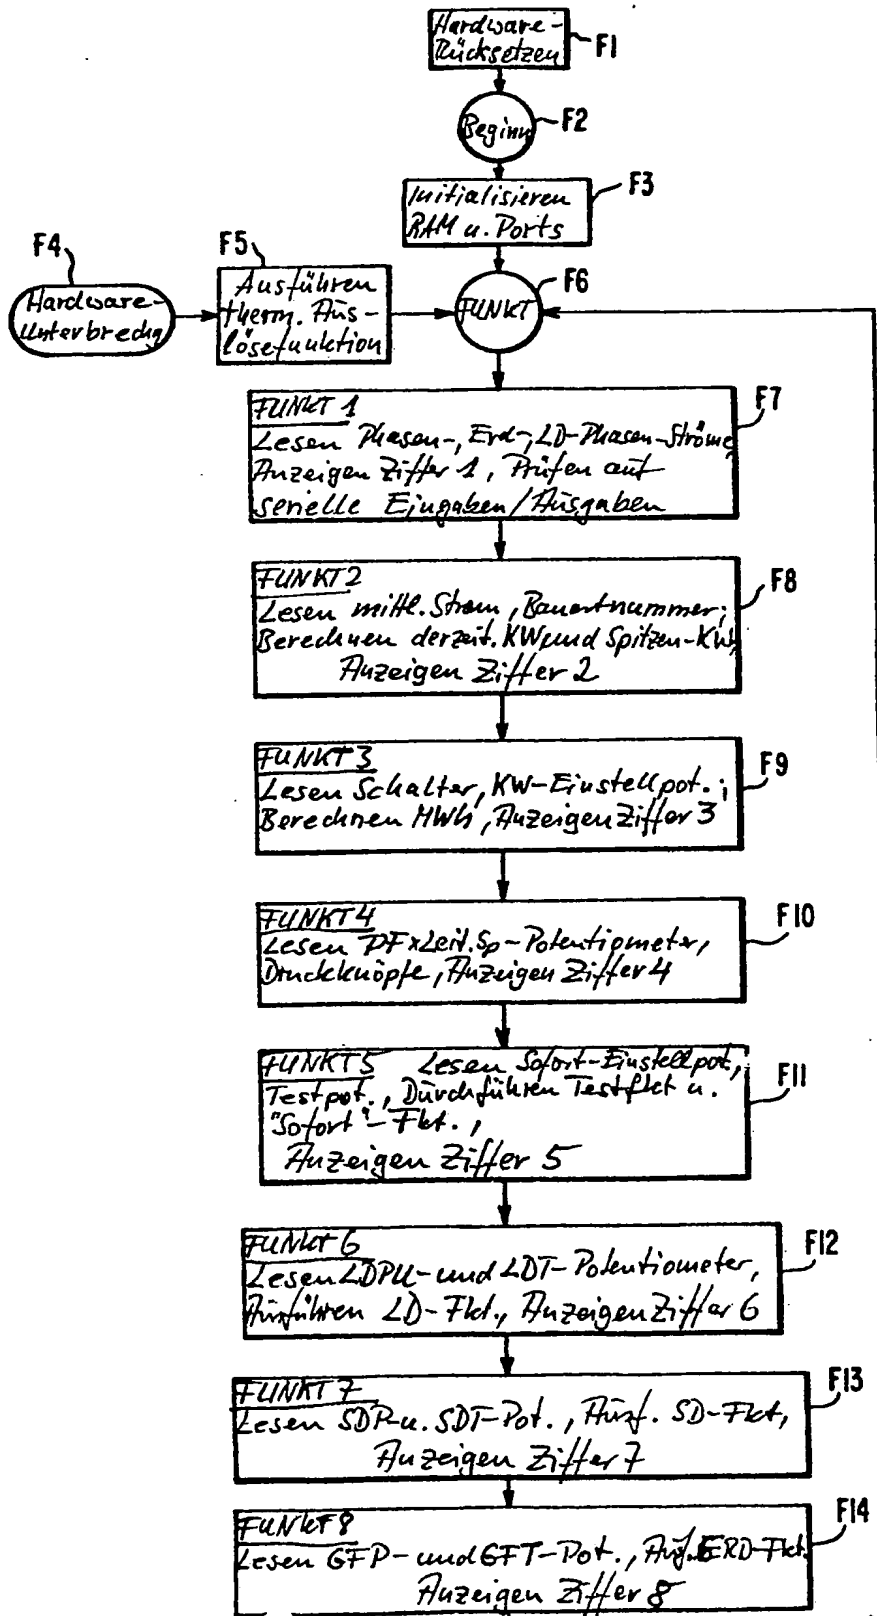 Hardware-
Rücksetzen
F1
Beginn
F2
Initialisieren
RAM u. Ports
F3
F4
Hardware-
Unterbrechg
F5
Ausführen
therm. Aus-
lösefunktion
FUNKT
F6
FUNKT 1
F7
Lesen Phasen-, Erd-, LD-Phasen-Ströme,
Anzeigen Ziffer 1, Prüfen auf
serielle Eingaben/Ausgaben
FUNKT 2
F8
Lesen mittl. Strom, Bauartnummer;
Berechnen derzeit. KW und Spitzen-KW,
Anzeigen Ziffer 2
FUNKT 3
F9
Lesen Schalter, KW-Einstellpot.;
Berechnen MWh, Anzeigen Ziffer 3
FUNKT 4
F10
Lesen PFxLeit.Sp-Potentiometer,
Druckknöpfe, Anzeigen Ziffer 4
FUNKT 5 Lesen Sofort-Einstellpot.,
F11
Testpot., Durchführen Testfkt u.
"Sofort"-Fkt.,
Anzeigen Ziffer 5
FUNKT 6
F12
Lesen LDPU- und LDT-Potentiometer,
Ausführen LD-Fkt., Anzeigen Ziffer 6
FUNKT 7
F13
Lesen SDP- u. SDT-Pot., Ausf. SD-Fkt,
Anzeigen Ziffer 7
FUNKT 8
F14
Lesen GFP- und GFT-Pot., Ausf. ERD-Fkt.
Anzeigen Ziffer 8